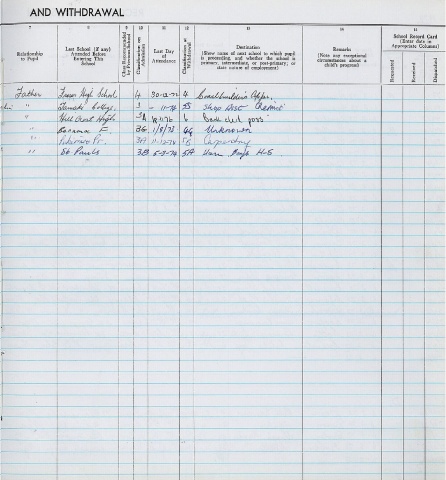 AND WITHDRAWAL
7 8 9 10 11 12 13 14 15
Relationship to Pupil
Last School (if any) Attended Before Entering This School
Class Recommended by Previous School
Classification on Admission
Last Day of Attendance
Classification at Withdrawal
Destination
(Show name of next school to which pupil is proceeding, and whether the school is primary, intermediate, or post-primary; or state nature of employment)
Remarks
(Note any exceptional circumstances about a child's progress)
School Record Card
(Enter date in Appropriate Columns)
Requested
Received
Dispatched
Father Fraser High School 4 30-12-76 4 Coachbuilder's Appr.
" Tamaki College 3 - 11-76 5S Shop Asst Chemist
" Hill Crest High 3A 6
" 3G 1/8/78 4G Unknown
" 3A 11-12-76 5B Carpentry
" St Pauls 3B 5A Ham. Boys H.S.